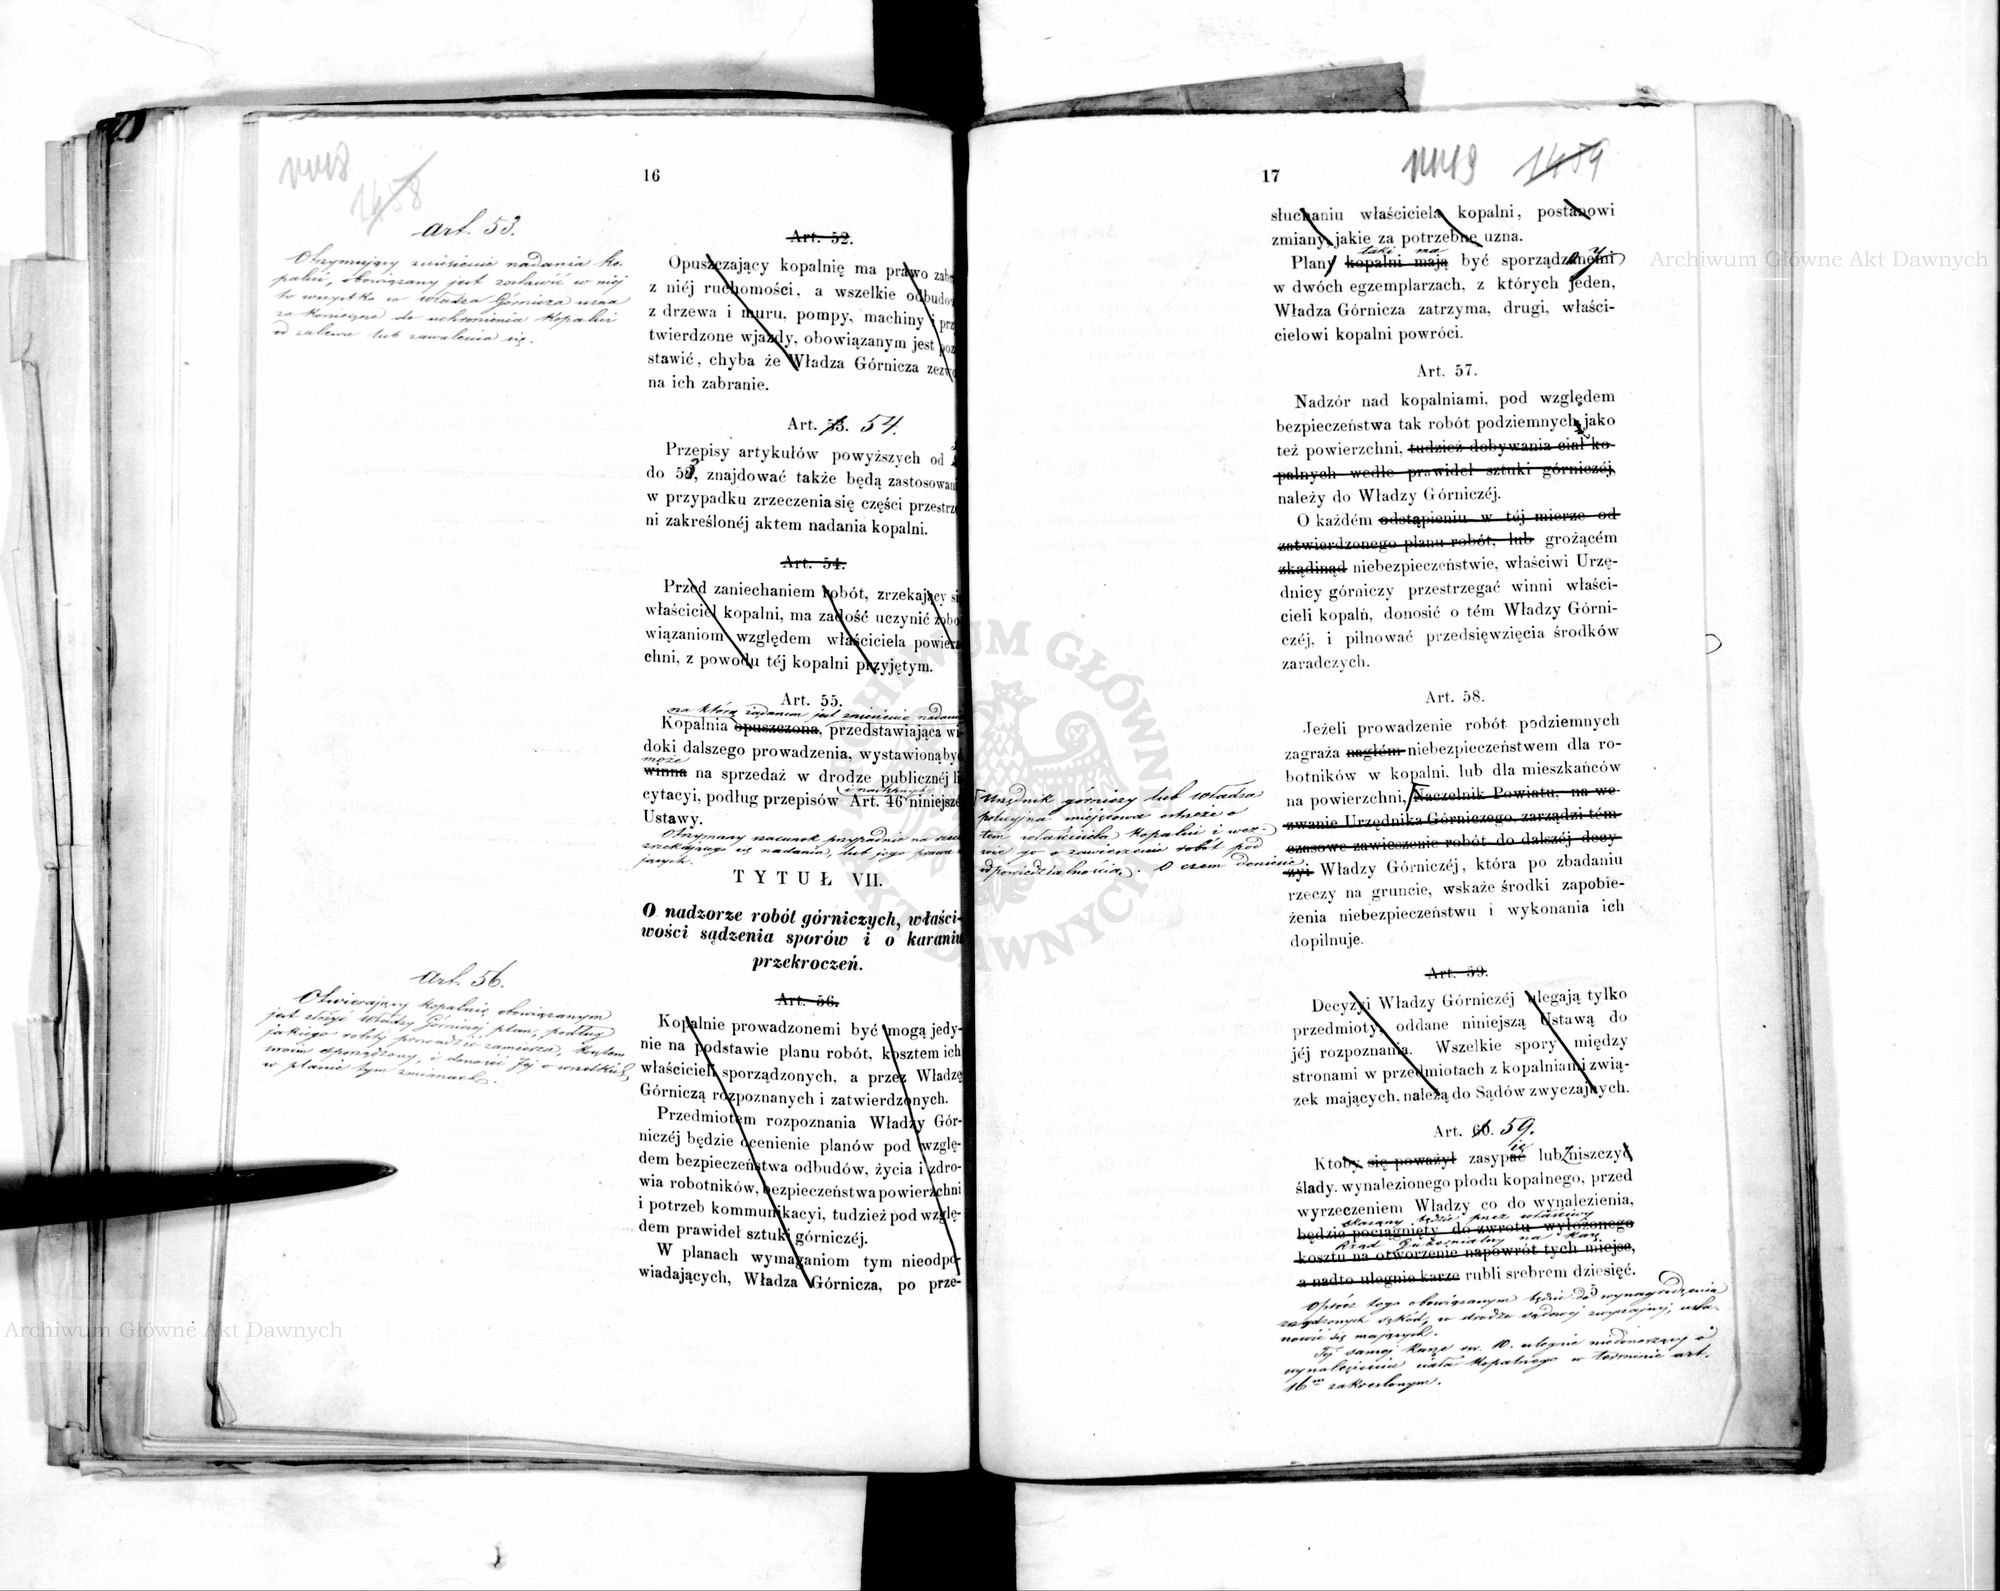 16
art. 53.
Otrzymujący zniesienie nadania ko-
palni, obowiązany jest zostawić w niéj
to wszystko co Władza Górnicza uzna
za konieczne do uchronienia kopalni
od zalewu lub zawalenia się.
Art. 52.
Opuszczający kopalnię ma prawo zab
z niéj ruchomości, a wszelkie odbudo
z drzewa i muru, pompy, machiny i prz
twierdzone wjazdy, obowiązanym jest poz
stawić, chyba że Władza Górnicza zezwo
na ich zabranie.
Art. 53. 54.
Przepisy artykułów powyższych od
do 52, znajdować także będą zastosowan
w przypadku zrzeczenia się części przestrz
ni zakreślonéj aktem nadania kopalni.
Art. 54.
Przed zaniechaniem robót, zrzekający si
właściciel kopalni, ma zadość uczynić zobo
wiązaniom względem właściciela powierz
chni, z powodu téj kopalni przyjętym.
Art. 55.
na którą żądanem jest zniesienie nadania
Kopalnia opuszczona, przedstawiająca wi
doki dalszego prowadzenia, wystawioną być
może
winna na sprzedaż w drodze publicznéj li
i następnych
cytacyi, podług przepisów Art. 46 niniejsze
Ustawy.
Otrzymany szacunek przypadnie na rzecz
zrzekającego się nadania, lub jego prawa
jących.
TYTUŁ VII.
O nadzorze robót górniczych, właści-
wości sądzenia sporów i o karaniu
przekroczeń.
art. 56.
Otwierający kopalnię obowiązanym
jest złożyć Władzy Górniczej plan, podług
jakiego roboty prowadzić zamierza, kosztem
swoim sporządzony, i donosić Jej o wszelkich
w planie tym zmianach.
Art. 56.
Kopalnie prowadzonemi być mogą jedy-
nie na podstawie planu robót, kosztem ich
właścicieli sporządzonych, a przez Władzę
Górniczą rozpoznanych i zatwierdzonych.
Przedmiotem rozpoznania Władzy Gór-
niczéj będzie ocenienie planów pod wzglę-
dem bezpieczeństwa odbudów, życia i zdro-
wia robotników, bezpieczeństwa powierzchni
i potrzeb kommunikacyi, tudzież pod wzglę-
dem prawideł sztuki górniczéj.
W planach wymaganiom tym nieodpo-
wiadających, Władza Górnicza, po prze-
17
słuchaniu właściciela kopalni, postanowi
zmiany, jakie za potrzebne uzna.
taki ma
Plany kopalni mają być sporządzonemi y
w dwóch egzemplarzach, z których jeden,
Władza Górnicza zatrzyma, drugi, właści-
cielowi kopalni powróci.
Art. 57.
Nadzór nad kopalniami, pod względem
bezpieczeństwa tak robót podziemnych, jako
też powierzchni, tudzież dobywania ciał ko-
palnych wedle prawideł sztuki górniczéj,
należy do Władzy Górniczéj.
O każdém odstąpieniu w téj mierze od
zatwierdzonego planu robót, lub grożącém
zkądinąd niebezpieczeństwie, właściwi Urzę-
dnicy górniczy przestrzegać winni właści-
cieli kopalń, donosić o tém Władzy Górni-
czéj, i pilnować przedsięwzięcia środków
zaradczych.
Art. 58.
Jeżeli prowadzenie robót podziemnych
zagraża nagłém niebezpieczeństwem dla ro-
botników w kopalni, lub dla mieszkańców
na powierzchni, Naczelnik Powiatu, na we-
zwanie Urzędnika Górniczego, zarządzi tém-
czasowe zawieszenie robót do dalszéj decy-
zyi Władzy Górniczéj, która po zbadaniu
rzeczy na gruncie, wskaże środki zapobie-
żenia niebezpieczeństwu i wykonania ich
dopilnuje.
Urzędnik górniczy lub Władza
policyjna miejscowa ostrzeże o
tem właściciela kopalni i wez-
wie go o zawieszenie robót pod
odpowiedzialnością. O czem doniesie
Art. 59.
Decyzyi Władzy Górniczéj ulegają tylko
przedmioty, oddane niniejszą Ustawą do
jéj rozpoznania. Wszelkie spory między
stronami w przedmiotach z kopalniami zwią-
zek mających, należą do Sądów zwyczajnych.
Art. 60. 59.
Ktoby się poważył zasypać lub zniszczyć
ślady wynalezionego płodu kopalnego, przed
wyrzeczeniem Władzy co do wynalezienia,
skazany będzie przez właściwy
będzie pociągnięty do zwrotu wyłożonego
Rząd Gubernialny na karę
kosztu na otworzenie napowrót tych miejsc,
a nadto ulegnie karze rubli srebrem dziesięć.
Oprócz tego obowiązanym będzie do wynagrodzenia
zrządzonych szkód, w drodze sądowej zwyczajnej, usta-
nowić się mających.
Téj samej karze rs. 10. ulegnie niedonoszący o
wynalezieniu ciała kopalnego w terminie art.
16 zakreślonym.
Archiwum Główne Akt Dawnych
Archiwum Główne Akt Dawnych
ARCHIWUM GŁÓWNE AKT DAWNYCH